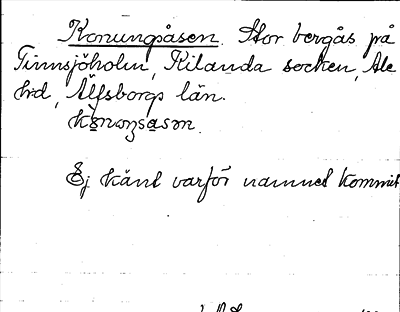 Konungsåsen. Stor bergås på
Finnsjöholm, Kilanda socken, Ale
hrd, Älfsborgs län.
Ej känt varför namnet kommit